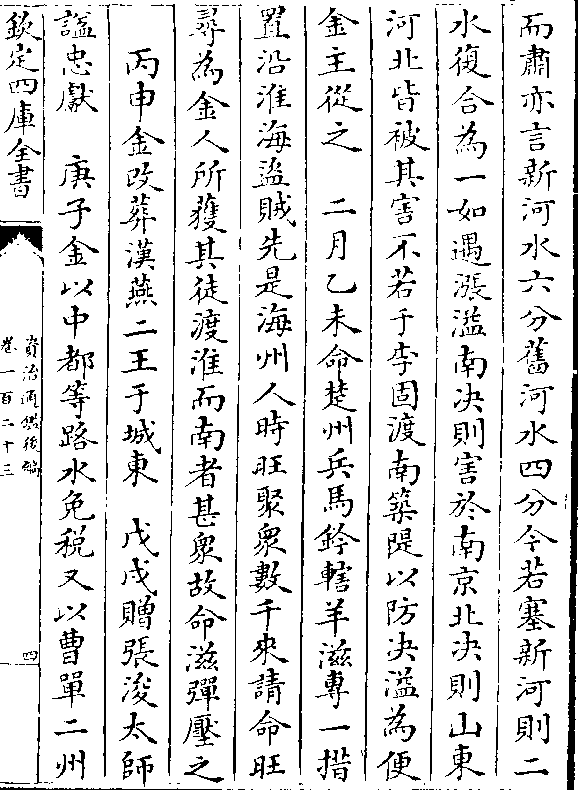 而肅亦言新河水六分舊河水四分今若塞新河則二
水復合為一如遇漲溢南決則害於南京北決則山東
河北皆被其害不若于李固渡南築隄以防決溢為便
金主從之　二月乙未命楚州兵馬鈐轄羊滋專一措
置沿淮海盜賊先是海州人時旺聚眾數千來請命旺
尋為金人所獲其徒渡淮而南者甚眾故命滋彈壓之
丙申金改葬漢燕二王于城東　戊戌贈張浚太師
謚忠獻　庚子金以中都等路水免税又以曹單二州
欽定四庫全書
資治通鑑後編
卷一百二十三
四